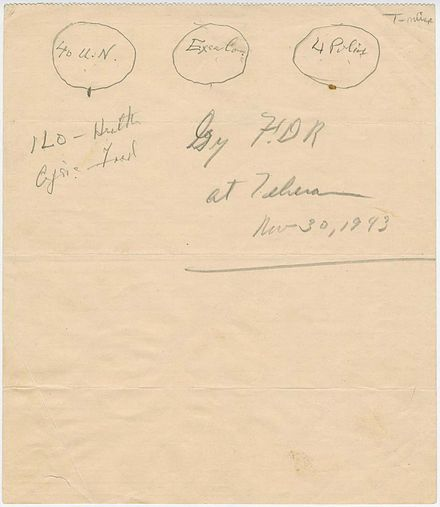 40 U.N.
Exec Com
4 Police
ILO - Health
Agric. Food
By FDR
at Teheran
Nov 30, 1943